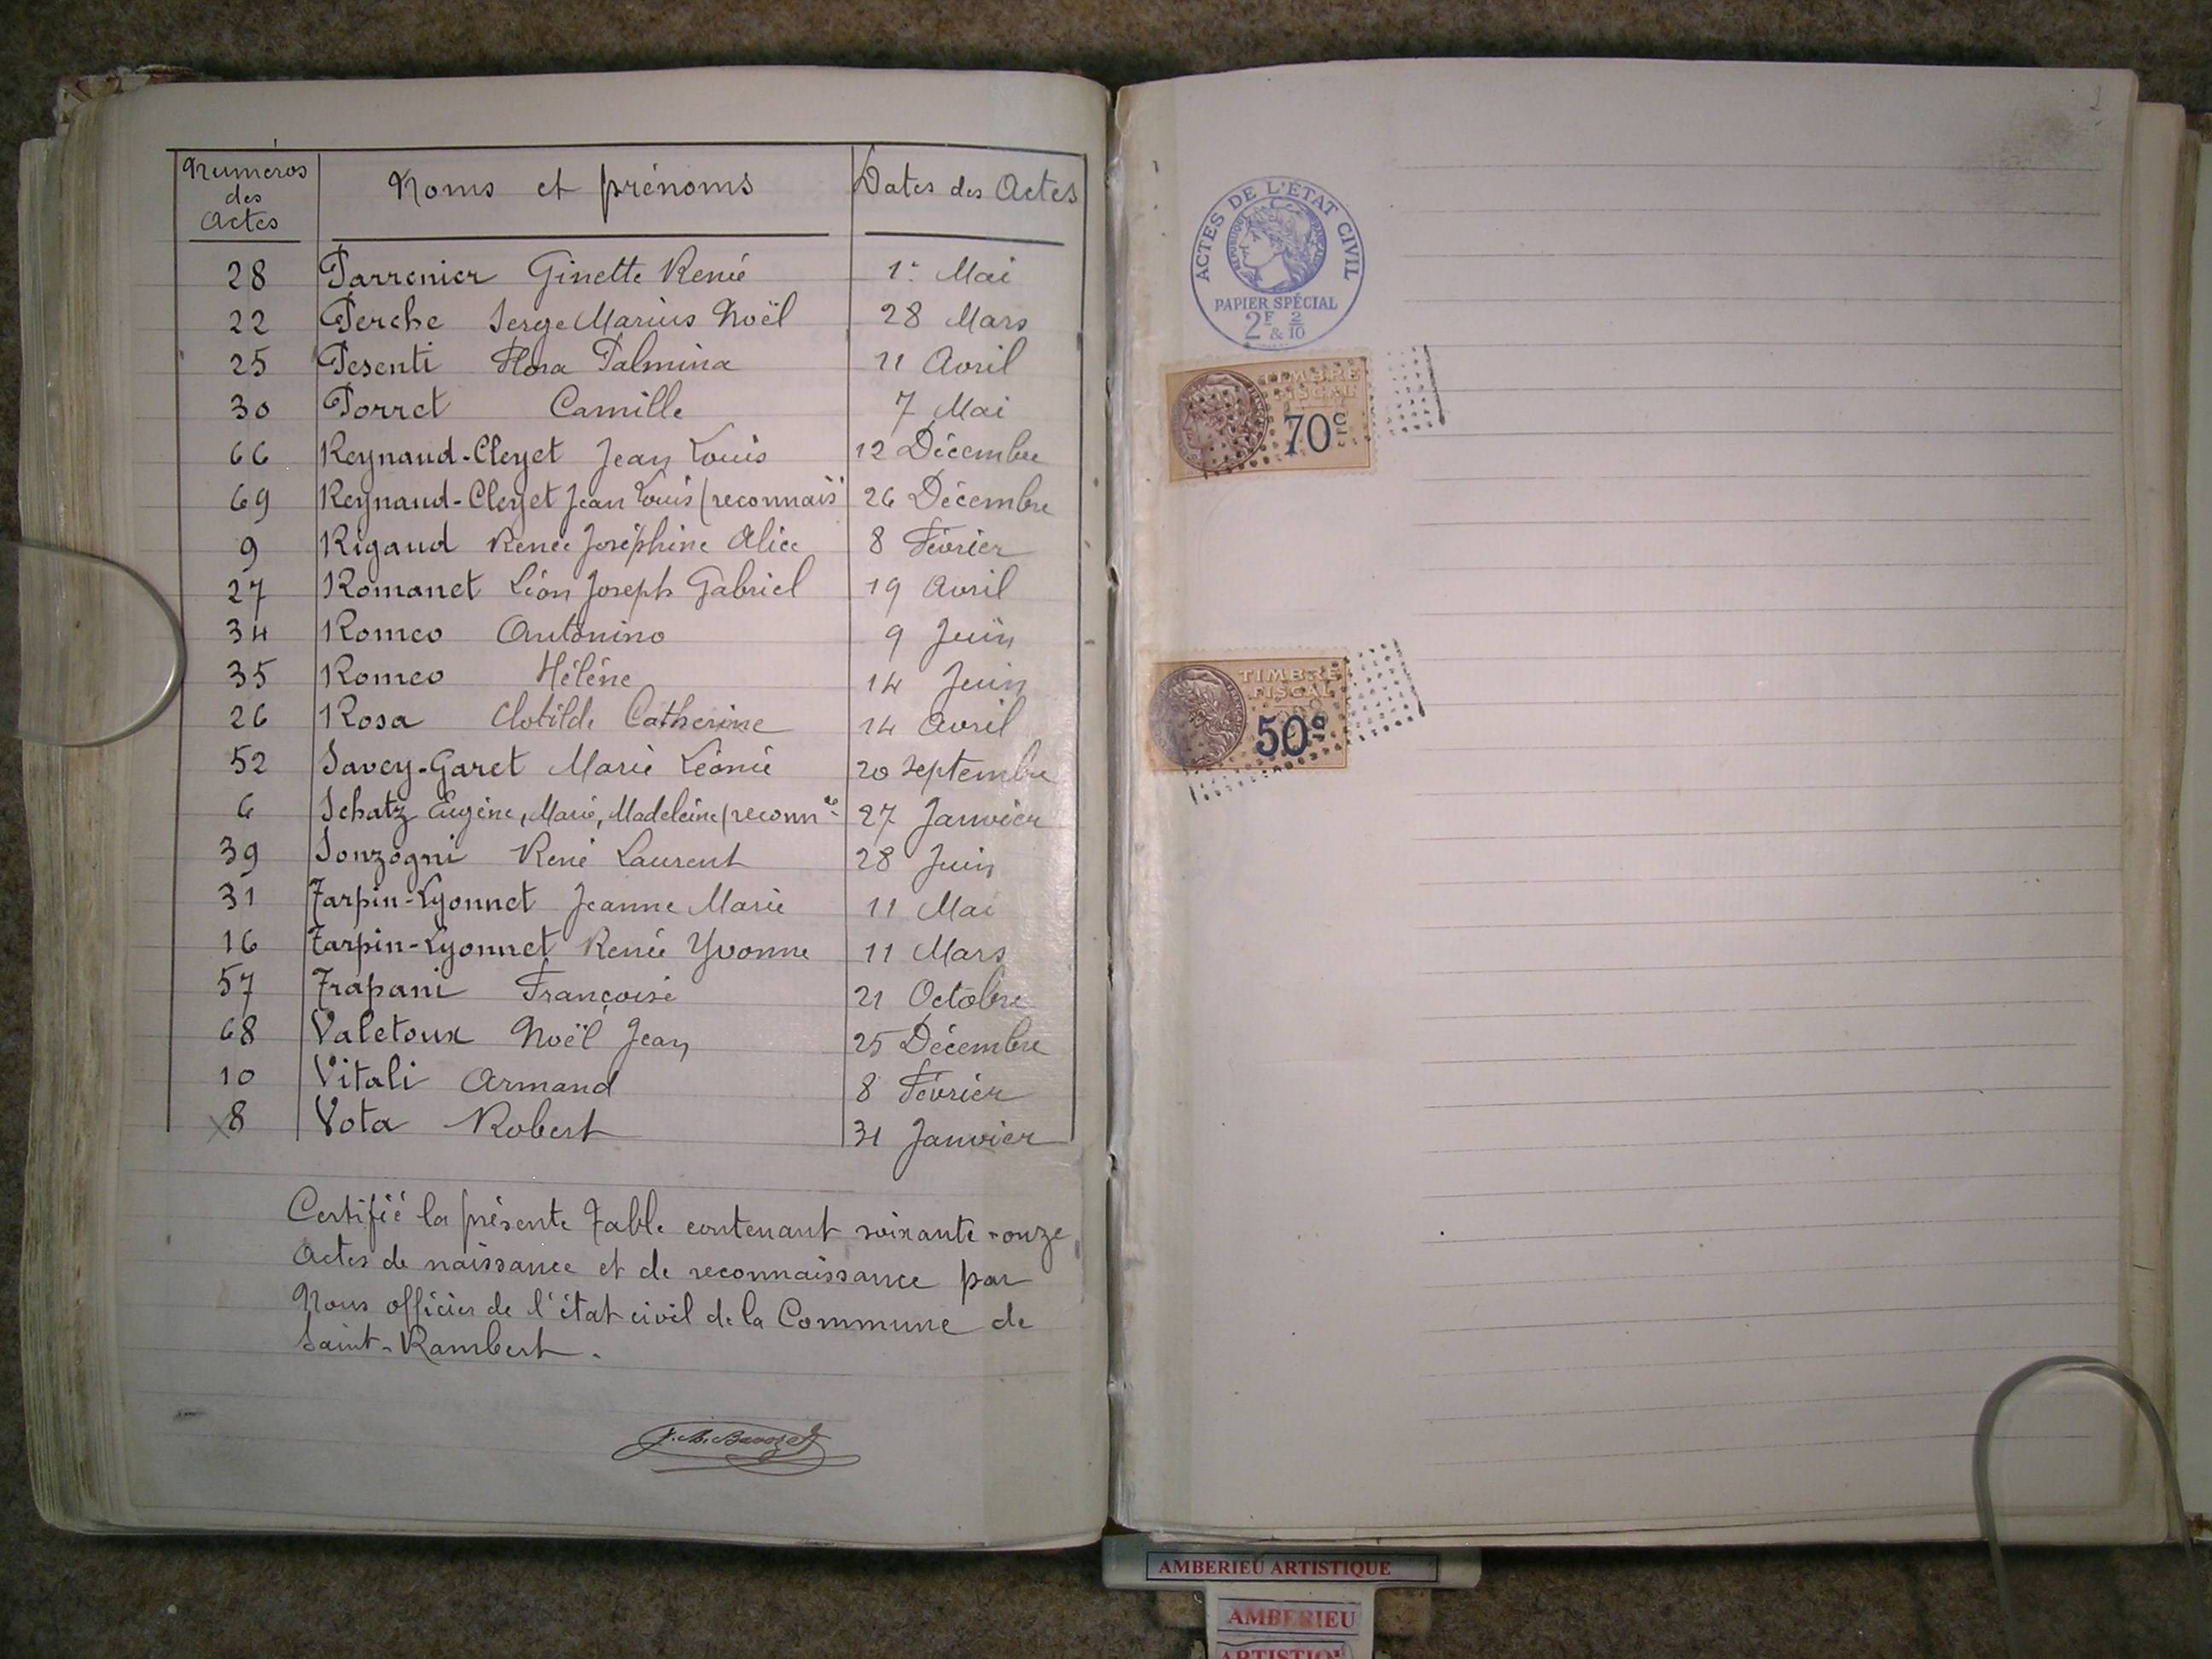 Numéros des Actes | Noms et prénoms | Dates des Actes
28 Parrenier Ginette Renée 1er Mai
22 Perche Serge Marius Noël 28 Mars
25 Pesenti Flora Palmina 11 Avril
30 Porret Camille 7 Mai
66 Reynaud-Cleyet Jean Louis 12 Décembre
69 Reynaud-Cleyet Jean Louis (reconnaiss 26 Décembre
9 Rigaud Renée Joséphine Alice 8 Février
27 Romanet Léon Joseph Gabriel 19 Avril
34 Romeo Antonino 9 Juin
35 Romeo Hélène 14 Juin
26 Rosa Clotilde Catherine 14 Avril
52 Savey-Garet Marie Léonie 20 Septembre
6 Schatz Eugène, Marie, Madeleine (reconnce 27 Janvier
39 Sonzogni René Laurent 28 Juin
31 Tarpin-Lyonnet Jeanne Marie 11 Mai
16 Tarpin-Lyonnet Renée Yvonne 11 Mars
57 Trapani Françoise 21 Octobre
68 Valetoux Noël Jean 25 Décembre
10 Vitali Armand 8 Février
8 Vota Robert 31 Janvier
Certifié la présente Table contenant soixante-onze
actes de naissance et de reconnaissance par
Nous officier de l'état civil de la Commune de
Saint-Rambert.
ACTES DE L'ÉTAT CIVIL
RÉPUBLIQUE FRANÇAISE
PAPIER SPÉCIAL
2F & 2/10
TIMBRE
FISCAL
70c
TIMBRE
FISCAL
50c
AMBERIEU ARTISTIQUE
AMBERIEU
ARTISTIQUE